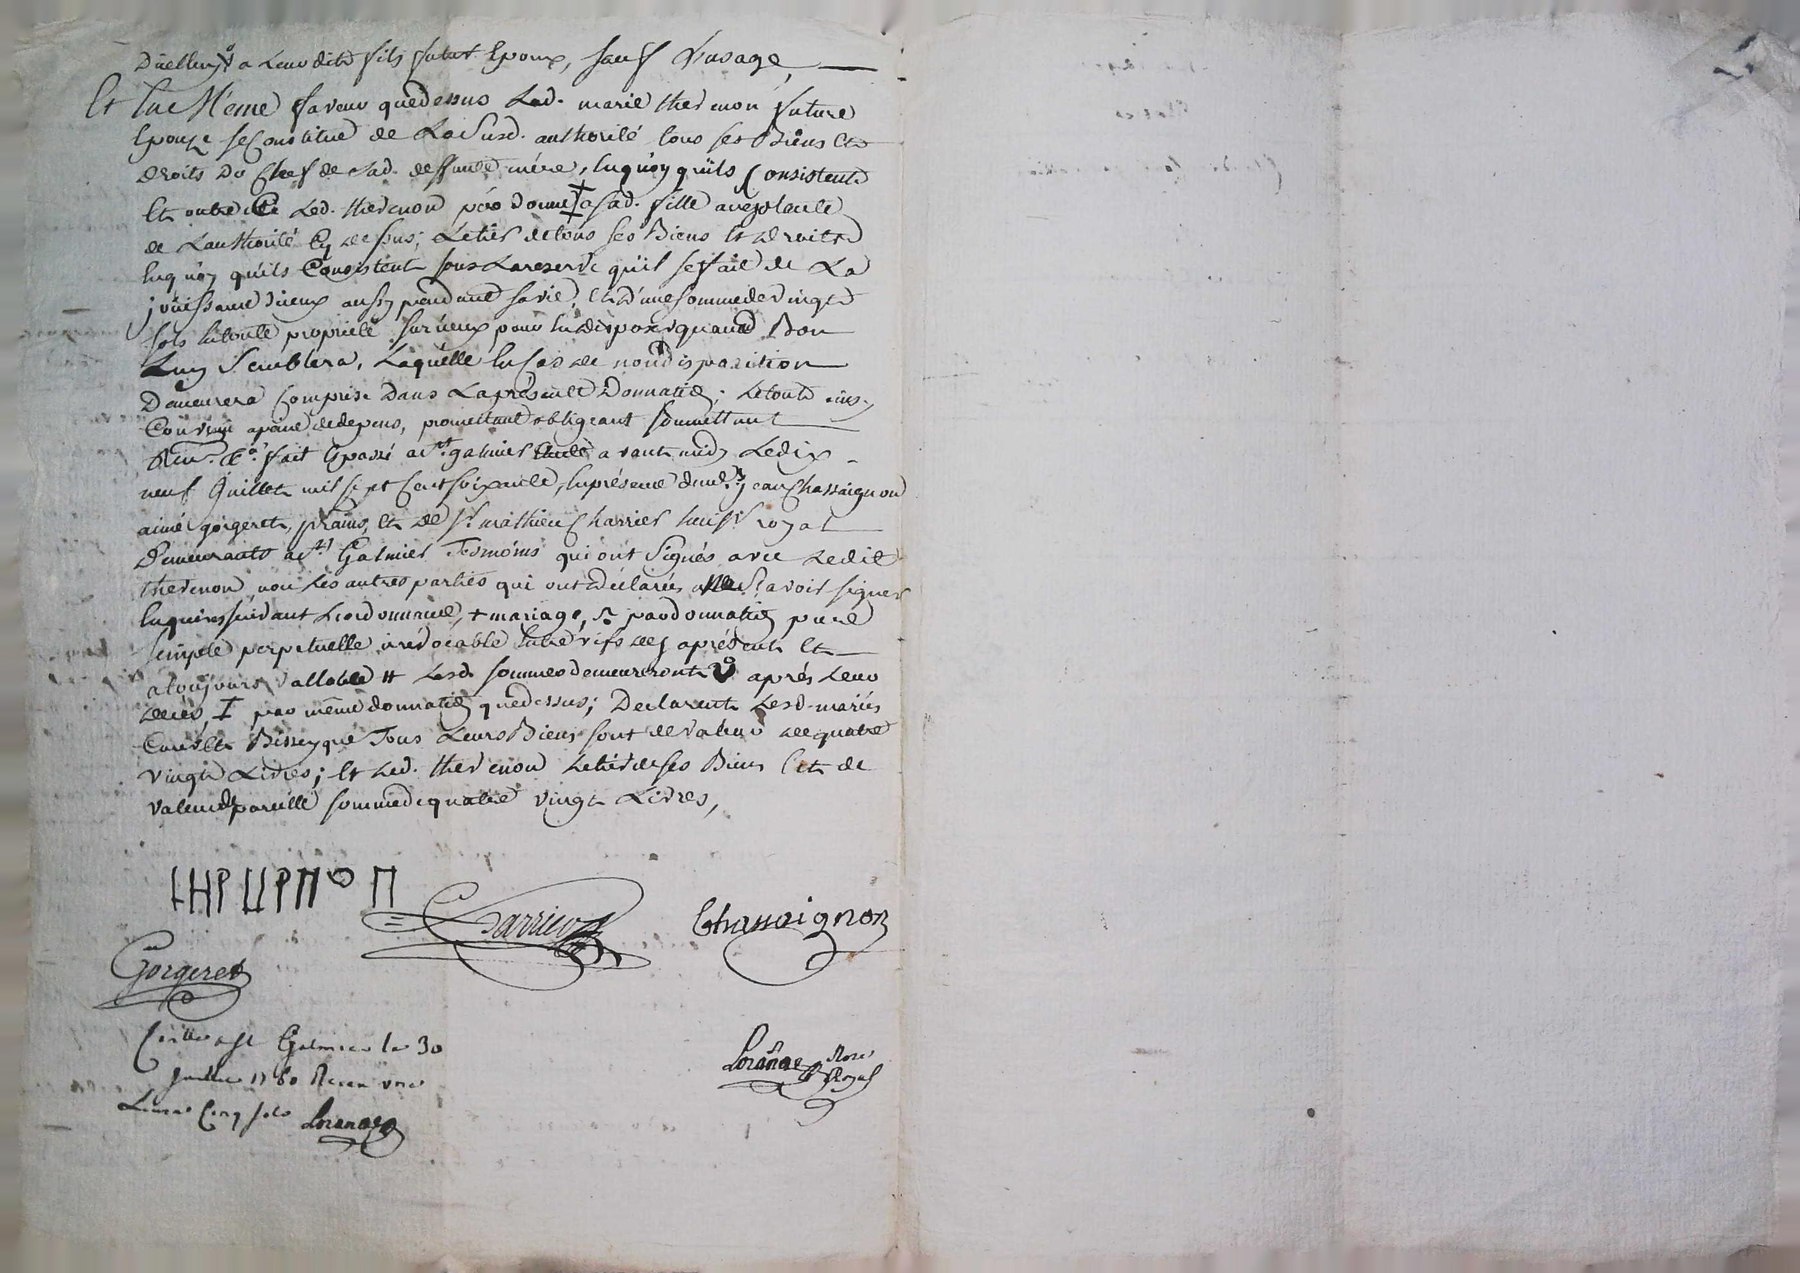 a leurdit fils futur Epoux, sauf L'usage,
Et En Meme faveur quedessus Lad. marie thevenon future
Epouze seConstitue de La Susd. authorité tous ses Biens Et
Droits Du Chef de Sad. deffunte mère, Enquoy quils Consistent
Et outre Ce Led. thevenon père donne a sad. fille acceptante
de Lauthorité Cy dessus; Letiers detous ses Biens Et Droits
Enquoy quils Consistent sous Lareserve quil sefait de La
jouissance diceux aussy pendant savie, Et d'une somme de vingt
sols Entoute propriété sur iceux pour En disposer quand Bon
Luy Semblera, Laquelle En Cas de non disposition
Demeurera Comprise Dans Laprésente Donnation; Letout ainsy
Convenu apeine dedepens, promettant obligeant soummettant
fait Epassé a St. galmier Etude avant midy Ledix
neuf Juillet mil sept Cent soixante, Enprésence de jean Chassaignon
aimé gorgeret, Et de Sr. mathieu Charrier huissr. royal
Demeurants a St. Galmier Tesmoins qui ont Signés avec Ledit
thevenon, non Les autres parties qui ont déclarés ne Scavoir signer
Enquis suivant Lordonnance, + mariage, par donnation pure
simple perpetuelle irrévocable Entre vifs dès aprésent Et
atoujours vallable # Lesd. sommes demeureront après Leur
decès, ‡ par meme donnation quedessus; Declarent Lesd. mariés
que Tous Leurs Biens sont de valeur de quatre
vingt Livres; Et Led. thevenon Letiers de ses Biens Est de
valeur de pareille somme de quatre vingt Livres,
thevenon
Charrier
Chassaignon
Gorgeret
Contlle a St Galmier le 30
juillet 1760 Recu une
Livre Cinq sols
Nore
Royal